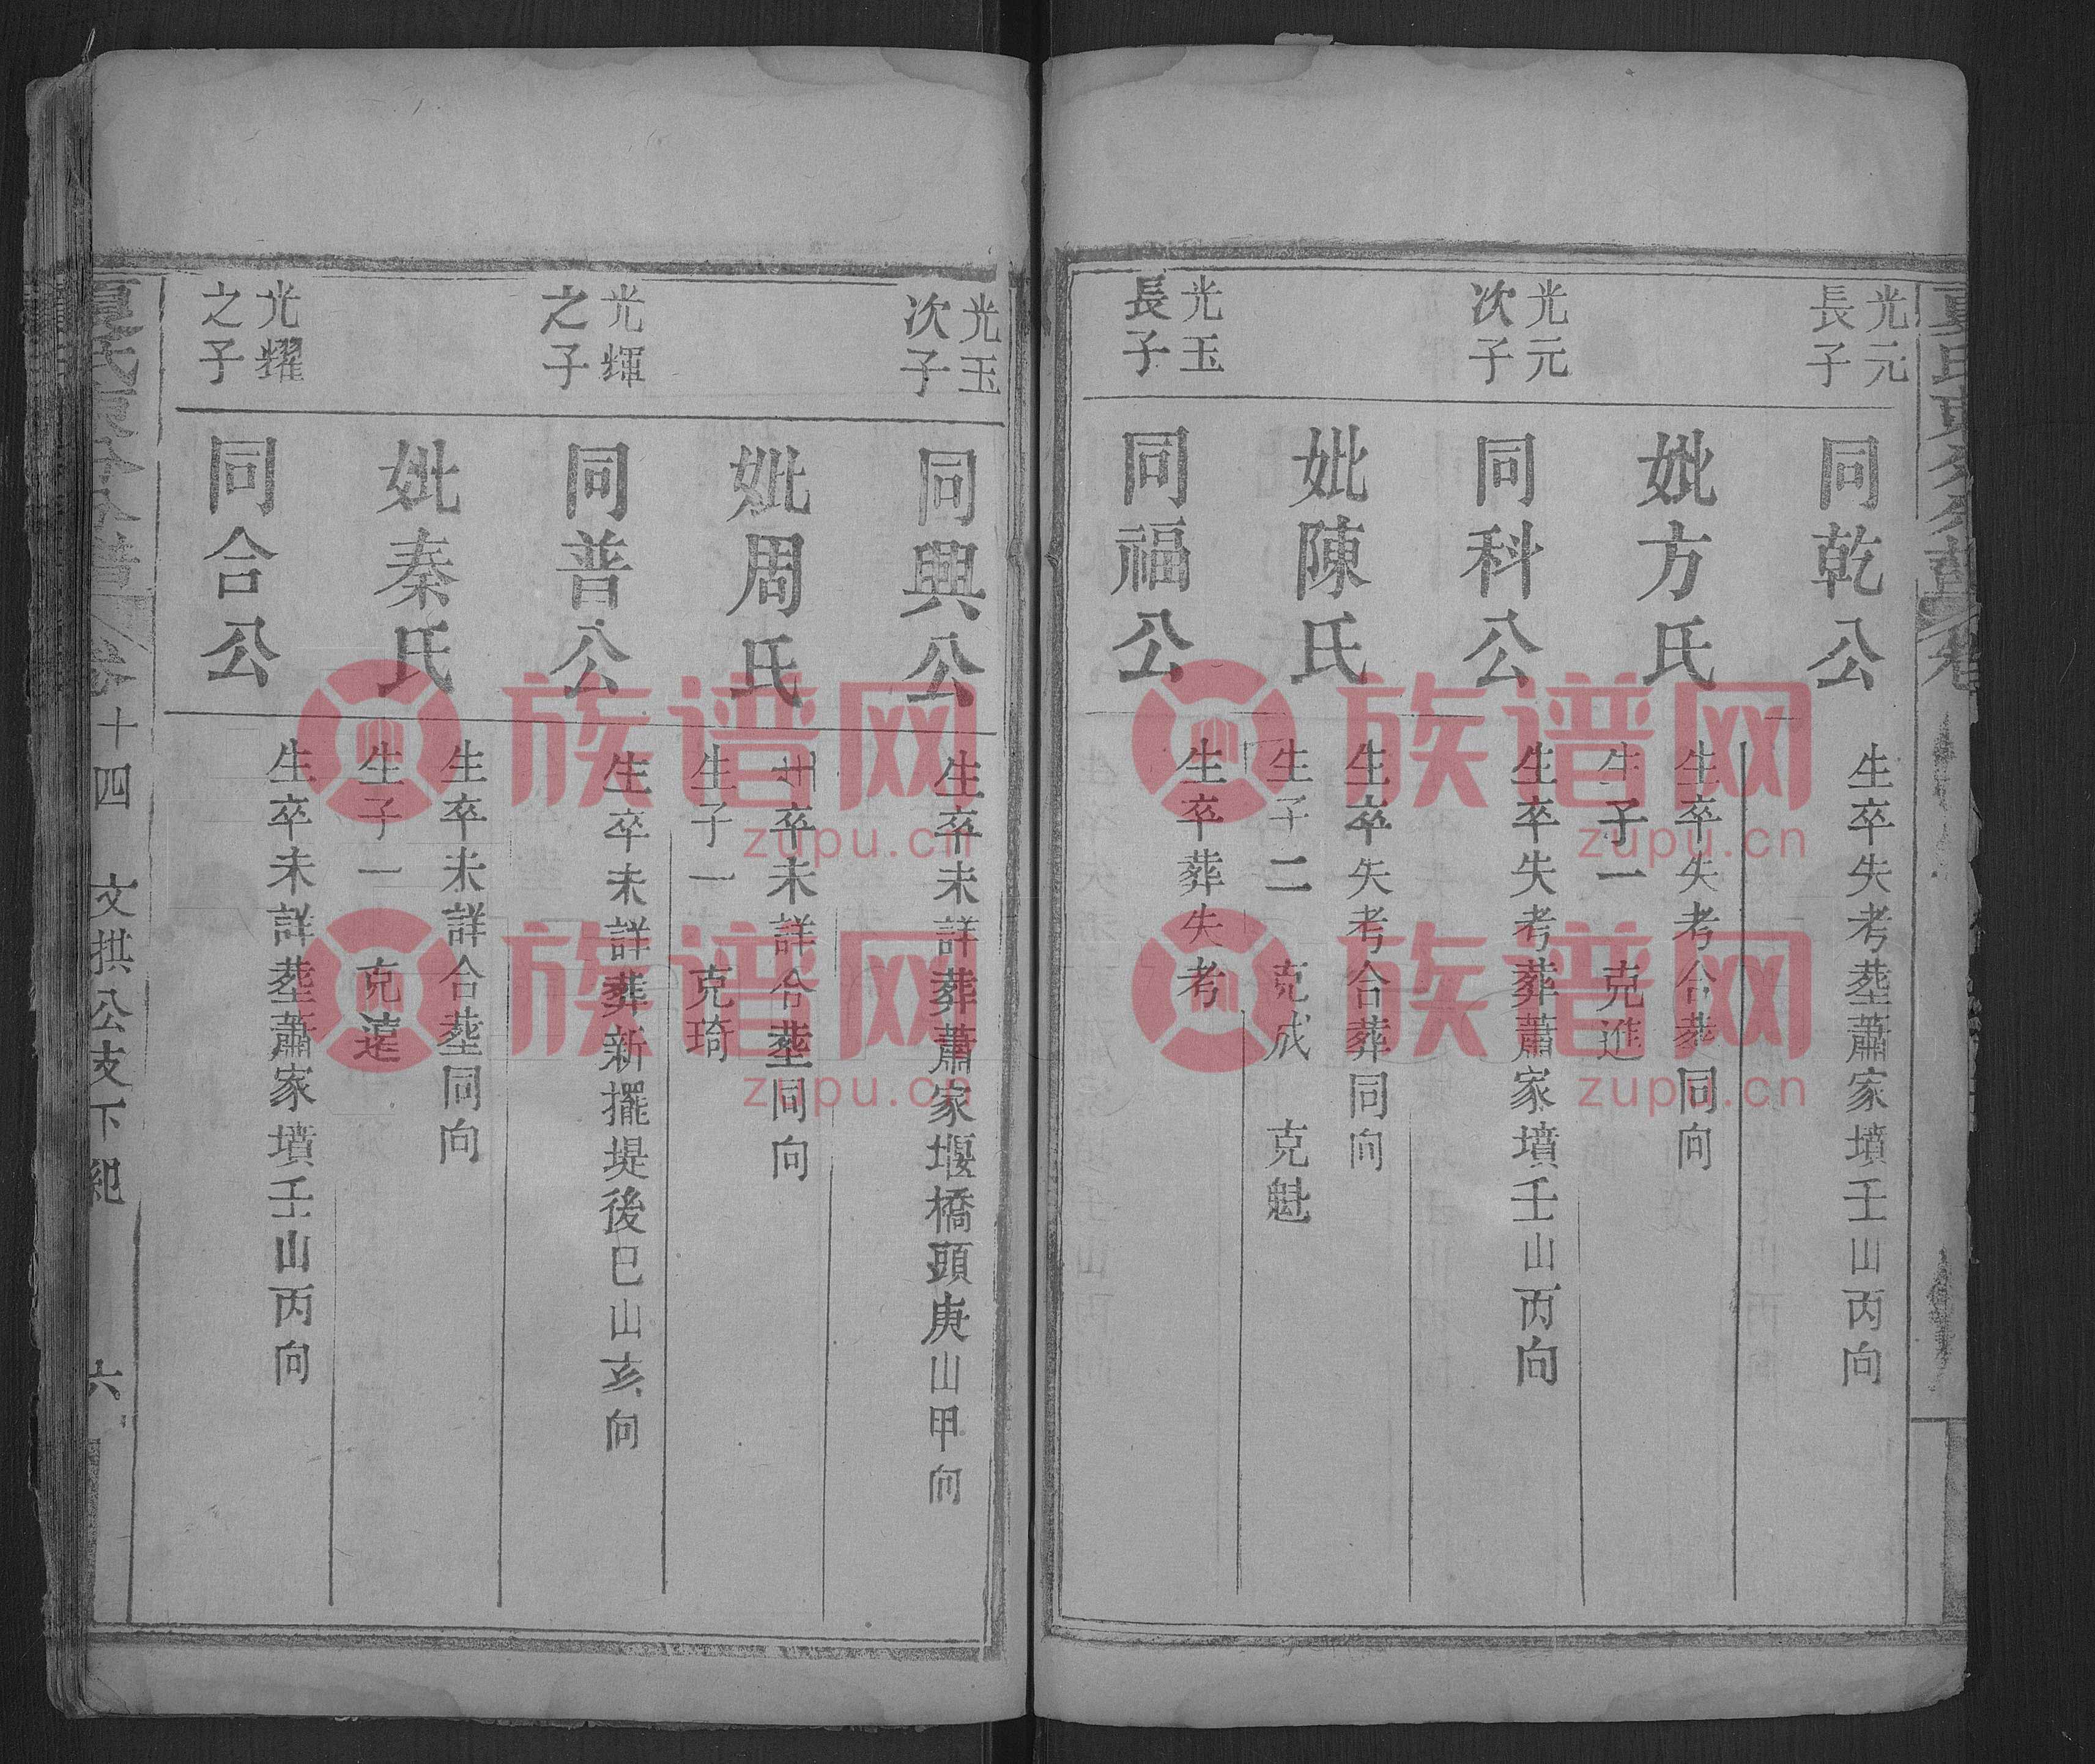 光元
長子
同乾公
生卒失考塟蕭家墳壬山丙向
妣方氏
生卒失考合葬同向
生子一 克進
光元
次子
同科公
生卒失考葬蕭家墳壬山丙向
妣陳氏
生卒失考合葬同向
生子二 克成 克魁
光玉
長子
同福公
生卒葬失考
光玉
次子
同興公
生卒未詳葬蕭家堰橋頭庚山甲向
妣周氏
卒未詳合塟同向
生子一 克琦
光輝
之子
同普公
生卒未詳葬新擺堤後巳山亥向
妣秦氏
生卒未詳合塟同向
生子一 克遠
光耀
之子
同合公
生卒未詳塟蕭家墳壬山丙向
夏氏 卷十四 文拱公支下紀 六
族谱网
zupu.cn
族谱网
zupu.cn
族谱网
zupu.cn
族谱网
zupu.cn